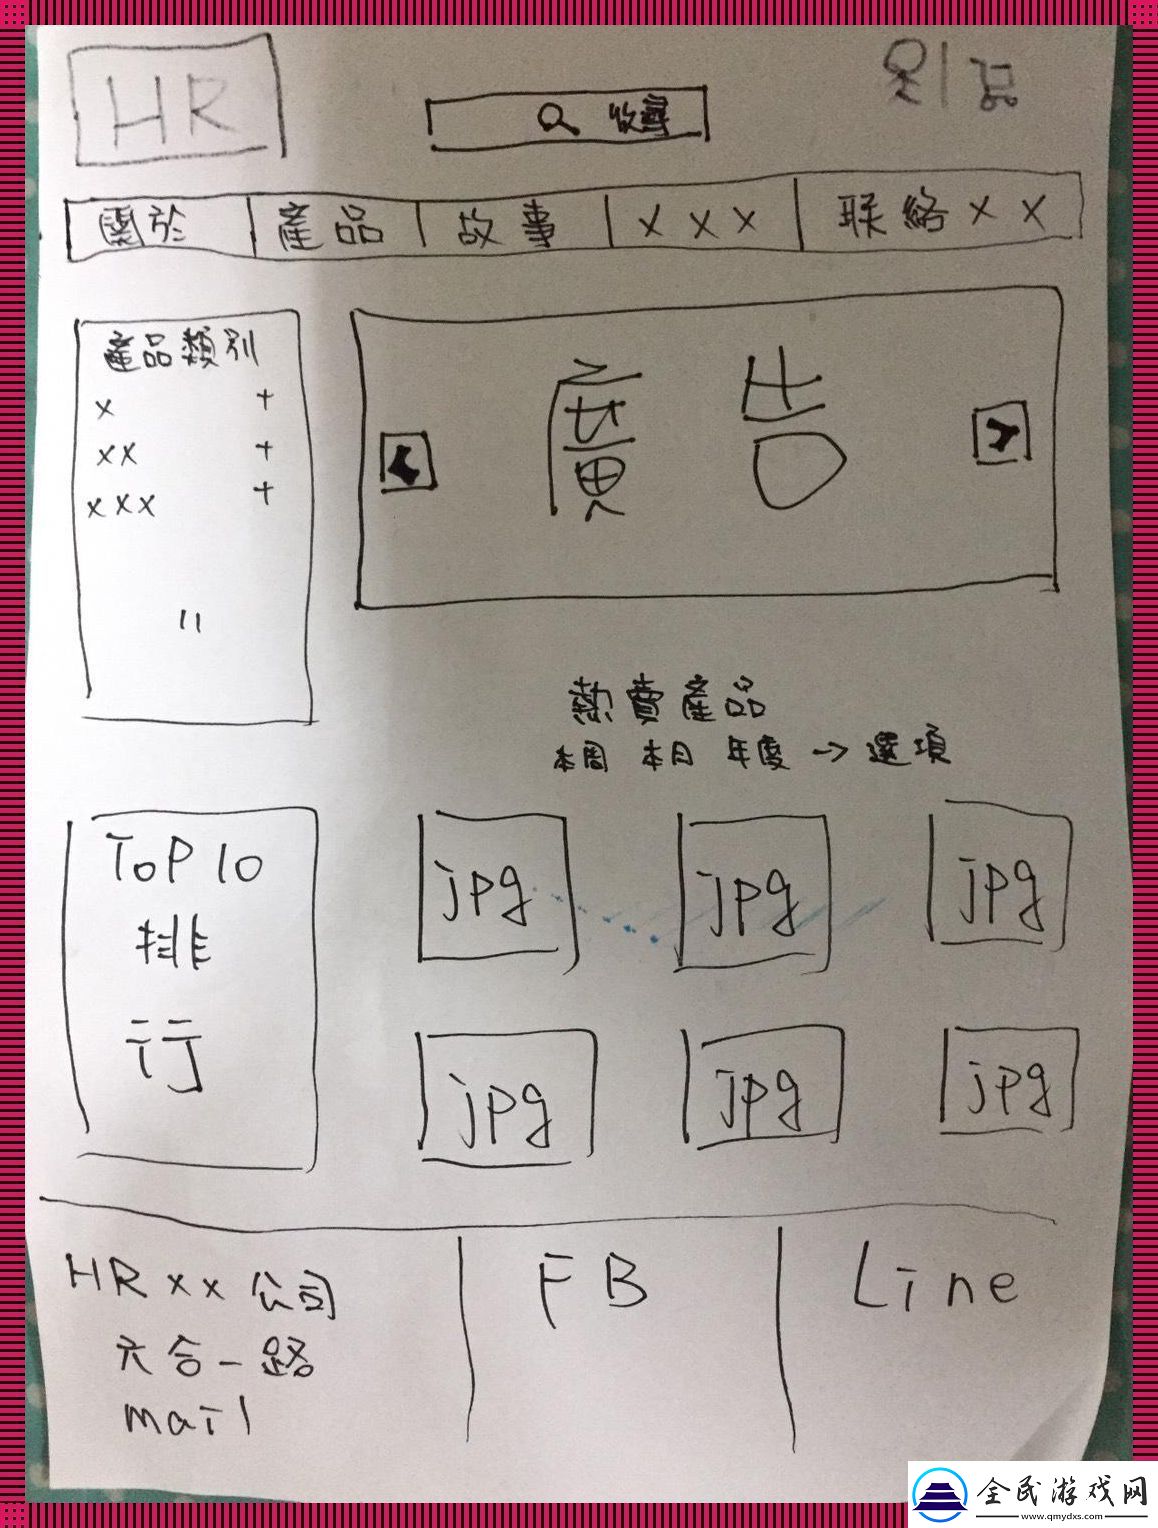 HR
收尋
關於 產品 故事 x x x 联絡 x x
產品類別
x +
xx +
xxx +
廣告
熱賣產品
本周 本月 年度 → 選項
TOP 10
排
行
jpg jpg jpg
jpg jpg jpg
HR xx 公司
六合一路
mail
FB
Line
全民游戏网
www.qmydxs.com